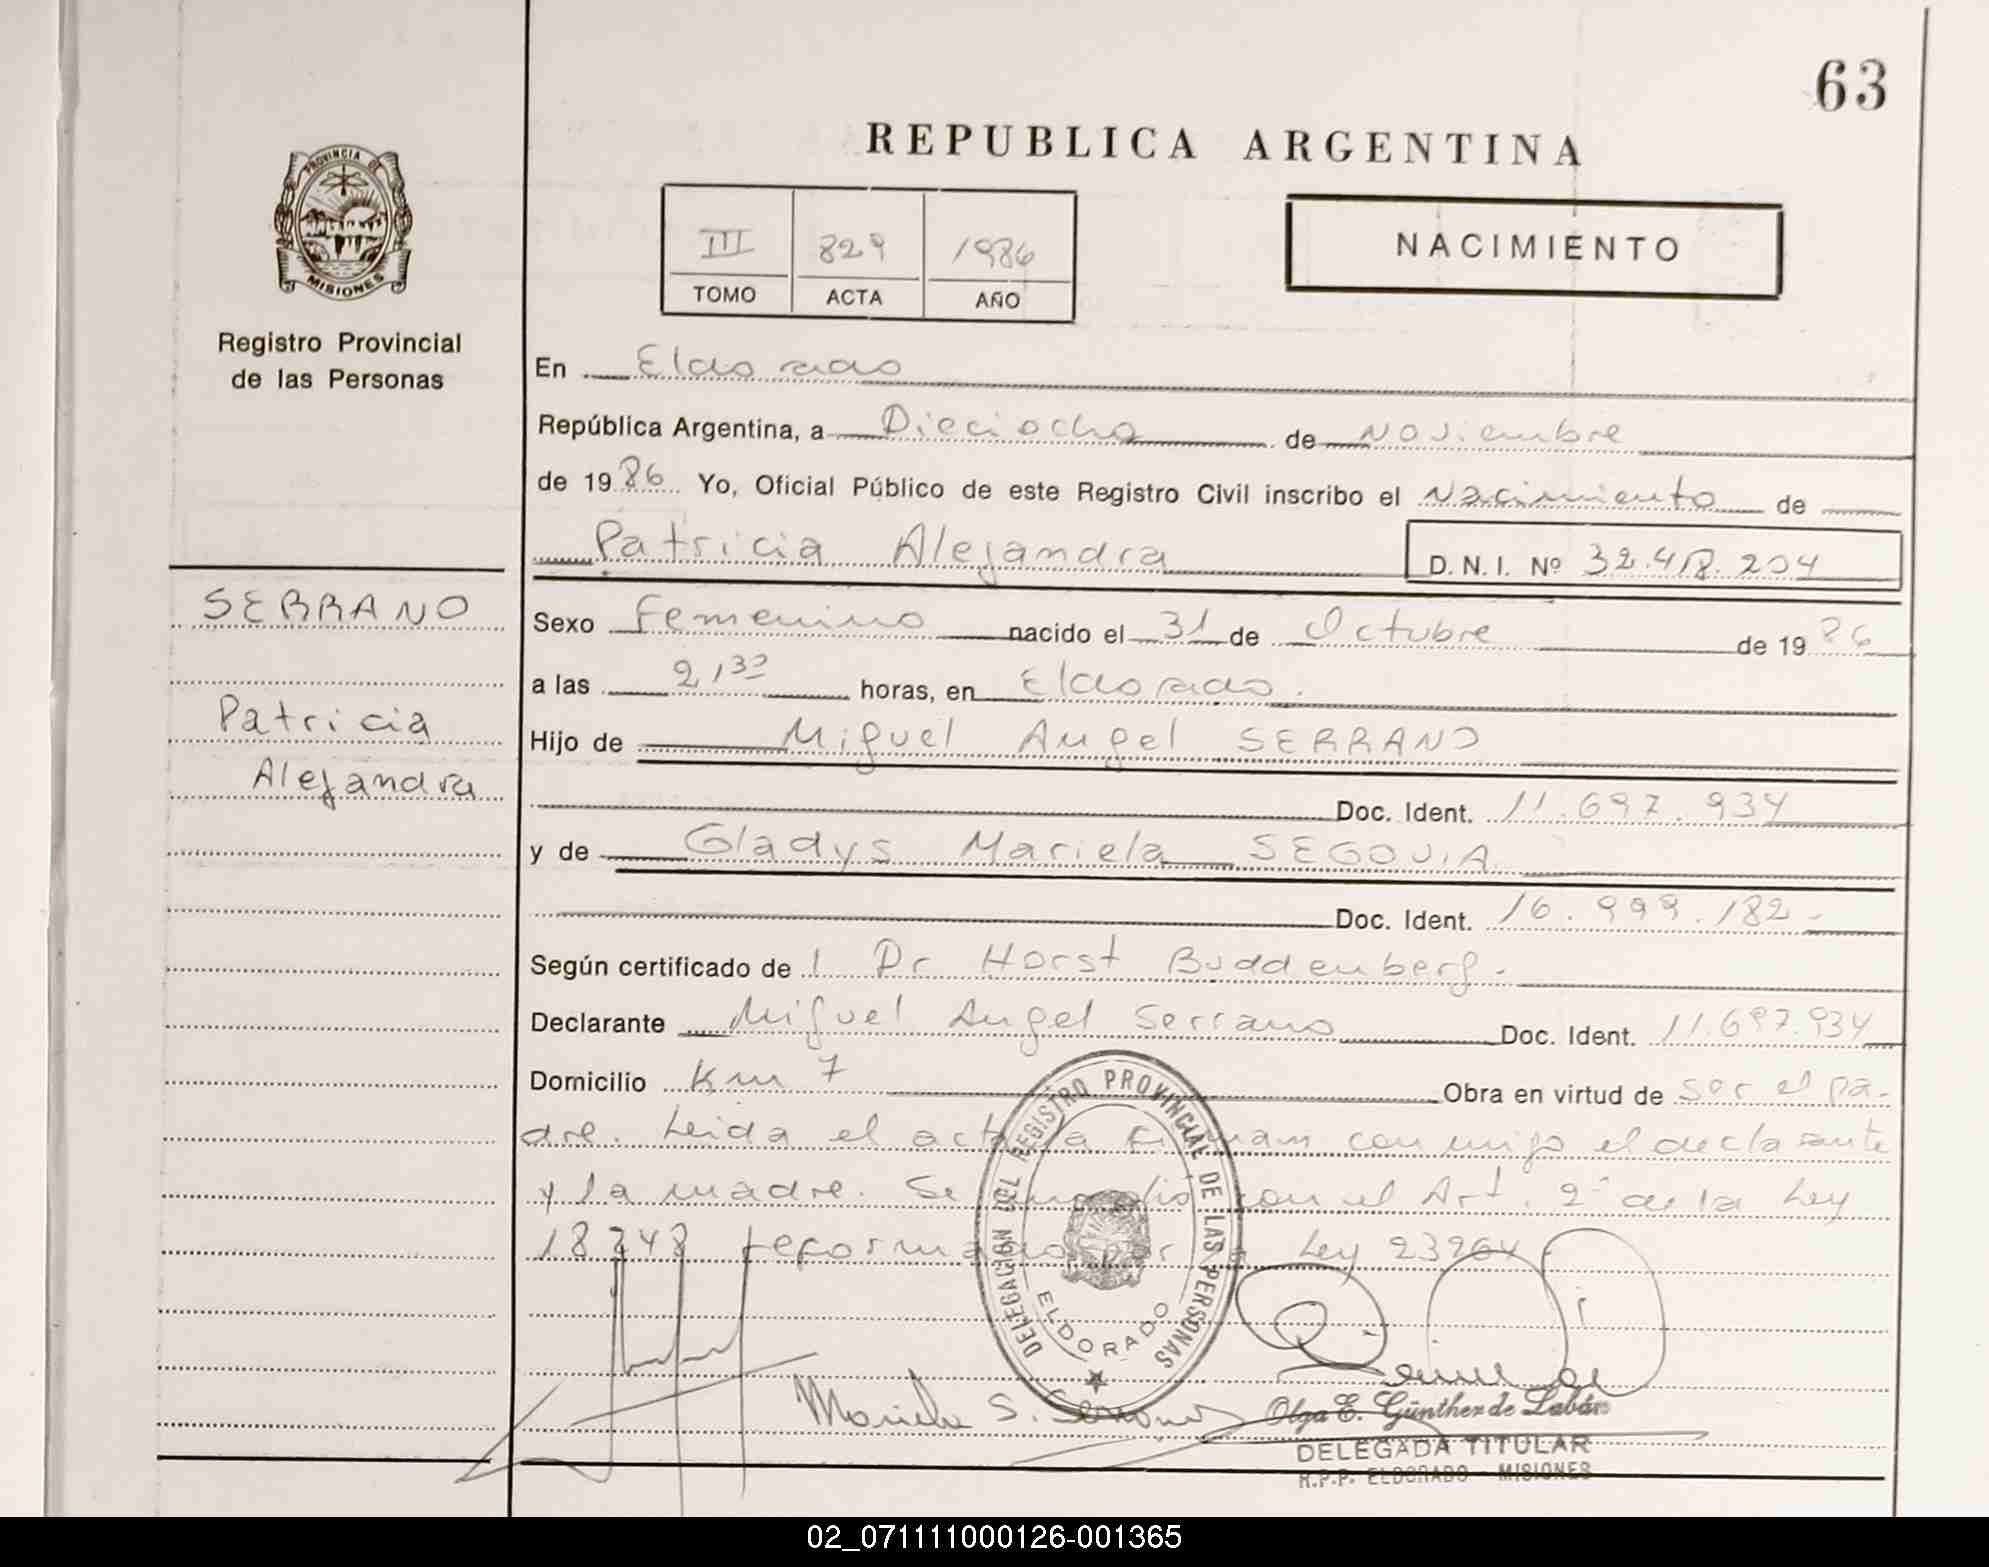 63
REPUBLICA ARGENTINA
PROVINCIA DE
MISIONES
III 829 1986
TOMO ACTA AÑO
NACIMIENTO
Registro Provincial
de las Personas
En Eldorado
República Argentina, a Dieciocho de Noviembre
de 1986 Yo, Oficial Público de este Registro Civil inscribo el Nacimiento de
Patricia Alejandra D. N. I. Nº
SERRANO
Patricia
Alejandra
Sexo Femenino nacido el 31 de Octubre de 1986
a las horas, en Eldorado.
Hijo de Miguel Angel SERRANO
Doc. Ident. 11.697.934
y de Gladys Mariela SEGOVIA
Doc. Ident. 16.999.182.-
Según certificado de 1 Dr Horst Buddenberg.-
Declarante Miguel Angel Serrano Doc. Ident. 11.697.934
Domicilio Km 7 Obra en virtud de ser el pa-
dre. Leida el acta la firman conmigo el declarante
y la madre. Se cumplió con el Art. 2º de la Ley
18248 reformado por la Ley 23264
DELEGACIÓN DEL REGISTRO PROVINCIAL DE LAS PERSONAS
ELDORADO
Mariela S. Serrano
Olga E. Günther de Labán
DELEGADA TITULAR
R.P.P. ELDORADO - MISIONES
02_071111000126-001365